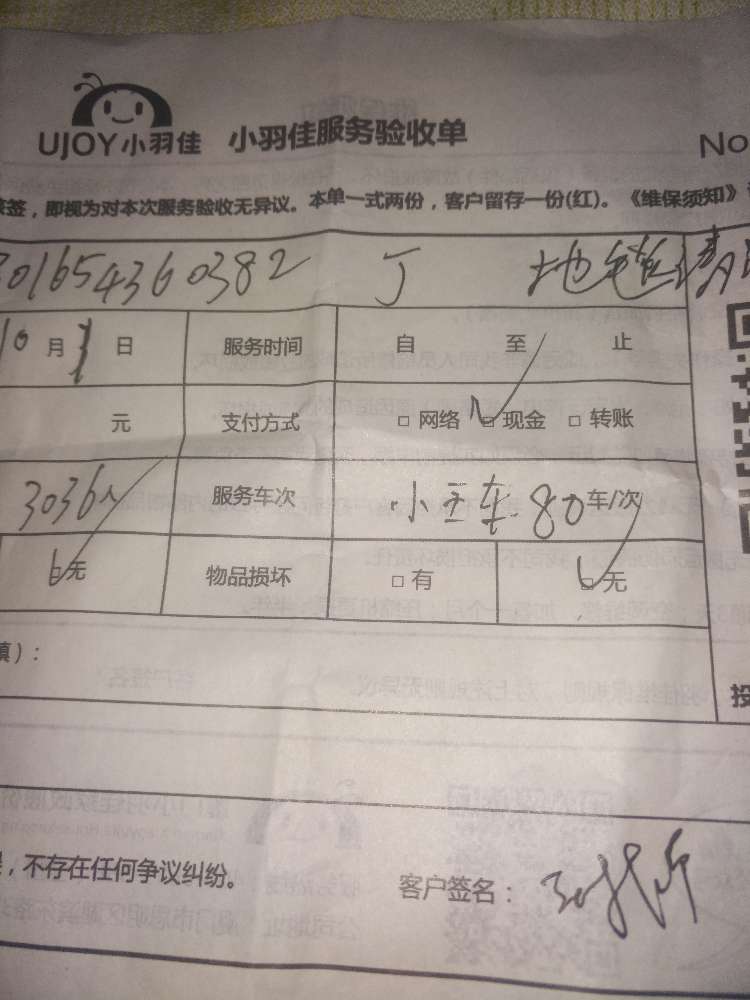 UJOY小羽佳 小羽佳服务验收单
No
签，即视为对本次服务验收无异议。本单一式两份，客户留存一份(红)。《维保须知》
301654360382 J 地毯清
10月 日 服务时间 自 至 止
元 支付方式 □ 网络 □ 现金 □ 转账
3036 服务车次 小 车 80 车/次
□ 无 物品损坏 □ 有 □ 无
填）：
投
，不存在任何争议纠纷。
客户签名：